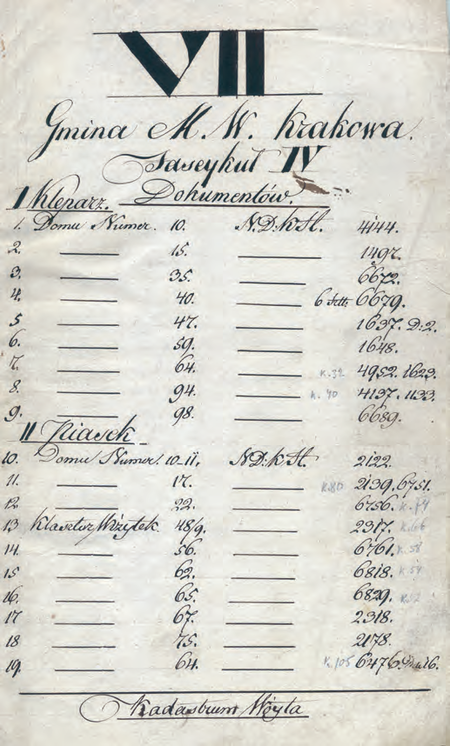 VII
Gmina M. W. Krakowa.
Fascykuł IV
Dokumentów.
I Kleparz.
1. Domu Numer. 10. N.D:k St. 4144.
2. 15. 1497.
3. 35. 6672.
4. 40. 6 6679.
5 47. 1637. D:2.
6. 59. 1648.
7. 64. k.32 4952. 1623.
8. 94. k. 40 4137. 1133.
9. 98. 6689.
II Piasek
10. Domu Numer. 10-11. N.D:k St. 2122.
11. 17. k.80 2139, 6751.
12 22. 6756. k.74
13 Klasztor Wizytek 48/9. 2317.
14. 56. 6761. k.58
15 62. 6818. k.54
16. 65. 6829.
17 67. 2318.
18 75. 2178.
19. 64. k.105 6476. 16.
Kadastrum Wóyta